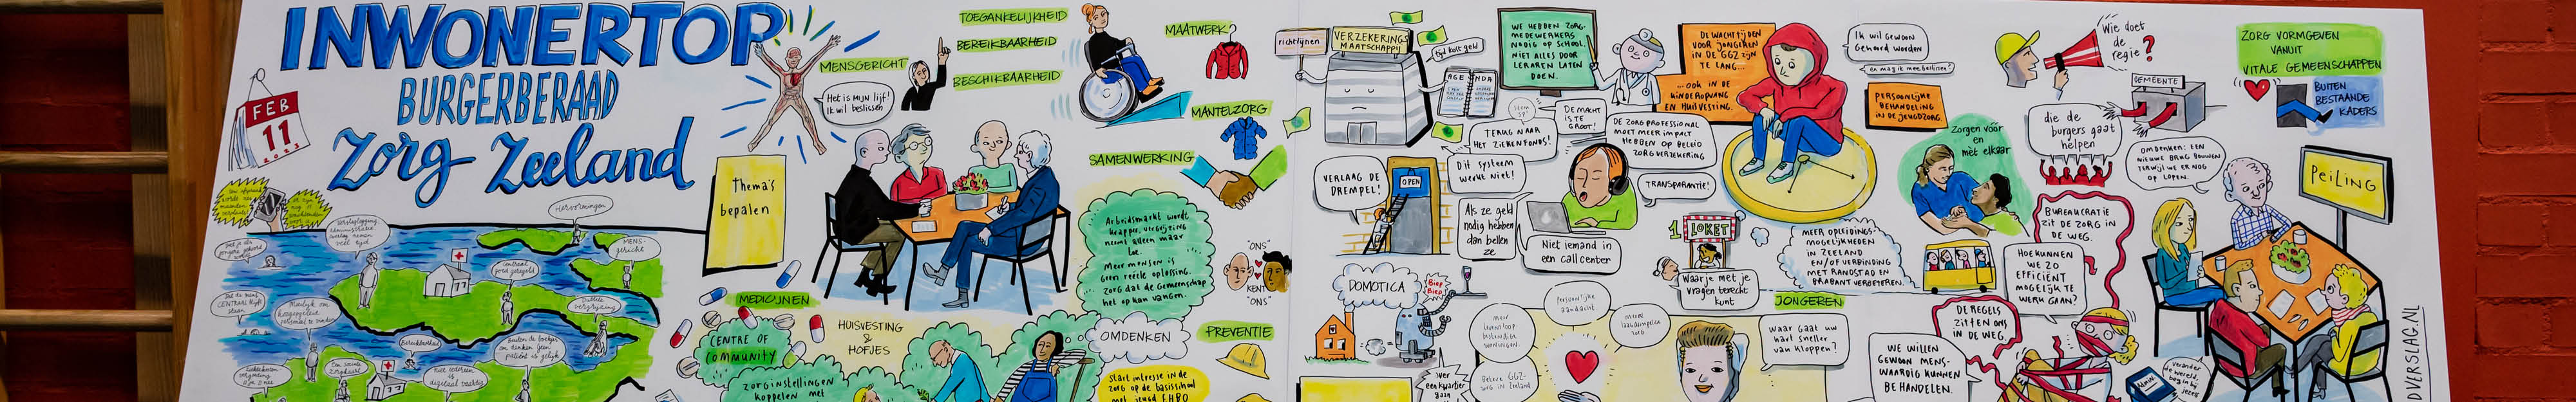 INWONERTOP
BURGERBERAAD
Zorg Zeeland
FEB
11
2023
Hervormingen
MENS-
gerichte
CENTRAAL blijft
staan
Bereikbaarheid
Buiten de hokjes
en denken geen
patiënt is gelijk
Niet iedereen is
digitaal vaardig
Dubbele
vergrijzing
Thema's
bepalen
MENSGERICHT
Het is MIJN lijf!
Ik wil beslissen
TOEGANKELIJKHEID
BEREIKBAARHEID
BESCHIKBAARHEID
MAATWERK
MANTELZORG
SAMENWERKING
Arbeidsmarkt wordt
krapper, vergrijzing
neemt alleen maar
toe.
Meer mensen is
geen reële oplossing.
zorg dat de Gemeenschap
het op kan vangen.
"ONS"
KENT
"ONS"
MEDICIJNEN
CENTRE OF
COMMUNITY
HUISVESTING
&
HOFJES
ZORGINSTELLINGEN
koppelen met
OMDENKEN
PREVENTIE
Start intresse in de
zorg op de basisschool
met jeugd EHBO
richtlijnen
VERZEKERINGS
MAATSCHAPPIJ
tijd kost geld
AGENDA
WE HEBBEN ZORG-
MEDEWERKERS
NODIG OP SCHOOL,
NIET ALLES DOOR
LERAREN LATEN
DOEN.
DE WACHTTIJDEN
VOOR JONGEREN
IN DE GGZ ZIJN
TE LANG...
...OOK IN DE
KINDEROPVANG
EN HUISVESTING.
Ik wil gewoon
Gehoord worden
en mag ik meebeslissen?
PERSOONLIJKE
BEHANDELING
IN DE JEUGDZORG
DE MACHT
IS TE
GROOT!
TERUG NAAR
HET ZIEKENFONDS!
Dit systeem
werkt niet!
DE ZORGPROFESSIONAL
MOET MEER IMPACT
HEBBEN OP BELEID
ZORGVERZEKERING
TRANSPARANTIE!
VERLAAG DE
DREMPEL!
OPEN
Als ze geld
nodig hebben
dan bellen
ze
Niet iemand in
een callcenter
1 LOKET
Waar je met je
vragen terecht
kunt
MEER OPLEIDINGS-
MOGELIJKHEDEN
IN ZEELAND
EN/OF VERBINDING
MET RANDSTAD EN
BRABANT VERBETEREN.
DOMOTICA
Biep
Biep
Meer
levensloop
bestendige
woningen
Persoonlijke
aandacht
Meer
laagdrempelige
zorg
Betere GGZ-
zorg in Zeeland
JONGEREN
Waar gaat uw
hart sneller
van kloppen?
over
een kwartier
gaan
Wie doet
de
regie?
GEMEENTE
ZORG VORMGEVEN
VANUIT
VITALE GEMEENSCHAPPEN
BUITEN
BESTAANDE
KADERS
Zorgen vóór
en
mèt elkaar
die de
burgers gaat
helpen
OMDENKEN: EEN
NIEUWE BRUG BOUWEN
TERWIJL WE ER NOG
OP LOPEN.
PEILING
BUREAUCRATIE
ZIT DE ZORG IN
DE WEG.
HOE KUNNEN
WE ZO
EFFICIËNT
MOGELIJK TE
WERK GAAN?
DE REGELS
ZITTEN ONS
IN DE WEG.
WE WILLEN
GEWOON MENS-
WAARDIG KUNNEN
BEHANDELEN.
verander
de wereld,
begin bij
jezelf
DVERSLAG.NL